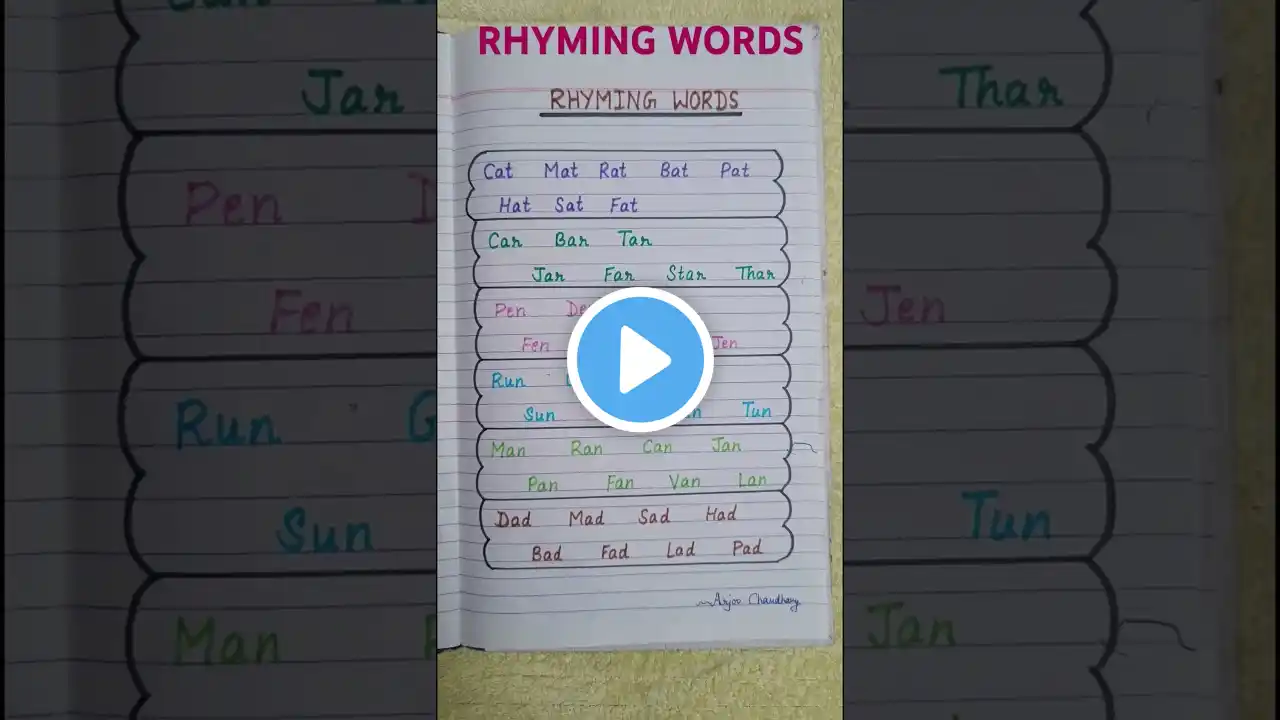 RHYMING WORDS
RHYMING WORDS
Cat Mat Rat Bat Pat
Hat Sat Fat
Car Bar Tar
Jar Far Star Thar
Pen
Fen Jen
Run
Sun Tun
Man Ran Can Jan
Pan Fan Van Lan
Dad Mad Sad Had
Bad Fad Lad Pad
~Arjoo Chaudhary